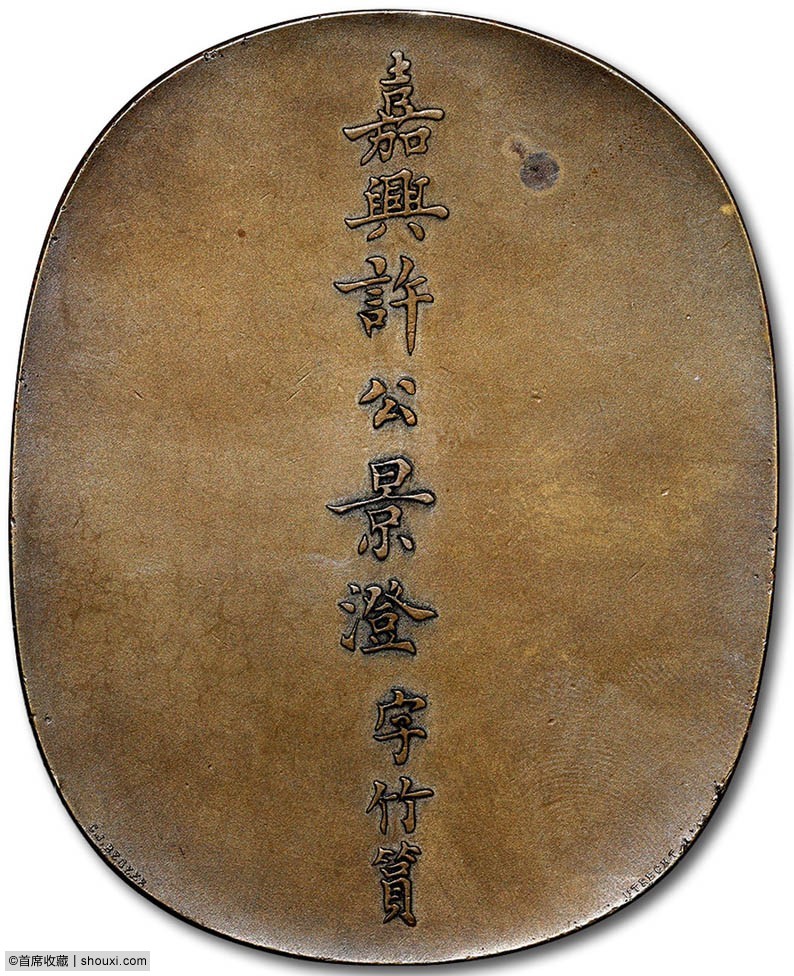 嘉興許公景澄字竹篔
C.J.BEGEER
UTRECHT
©首席收藏 | shouxi.com